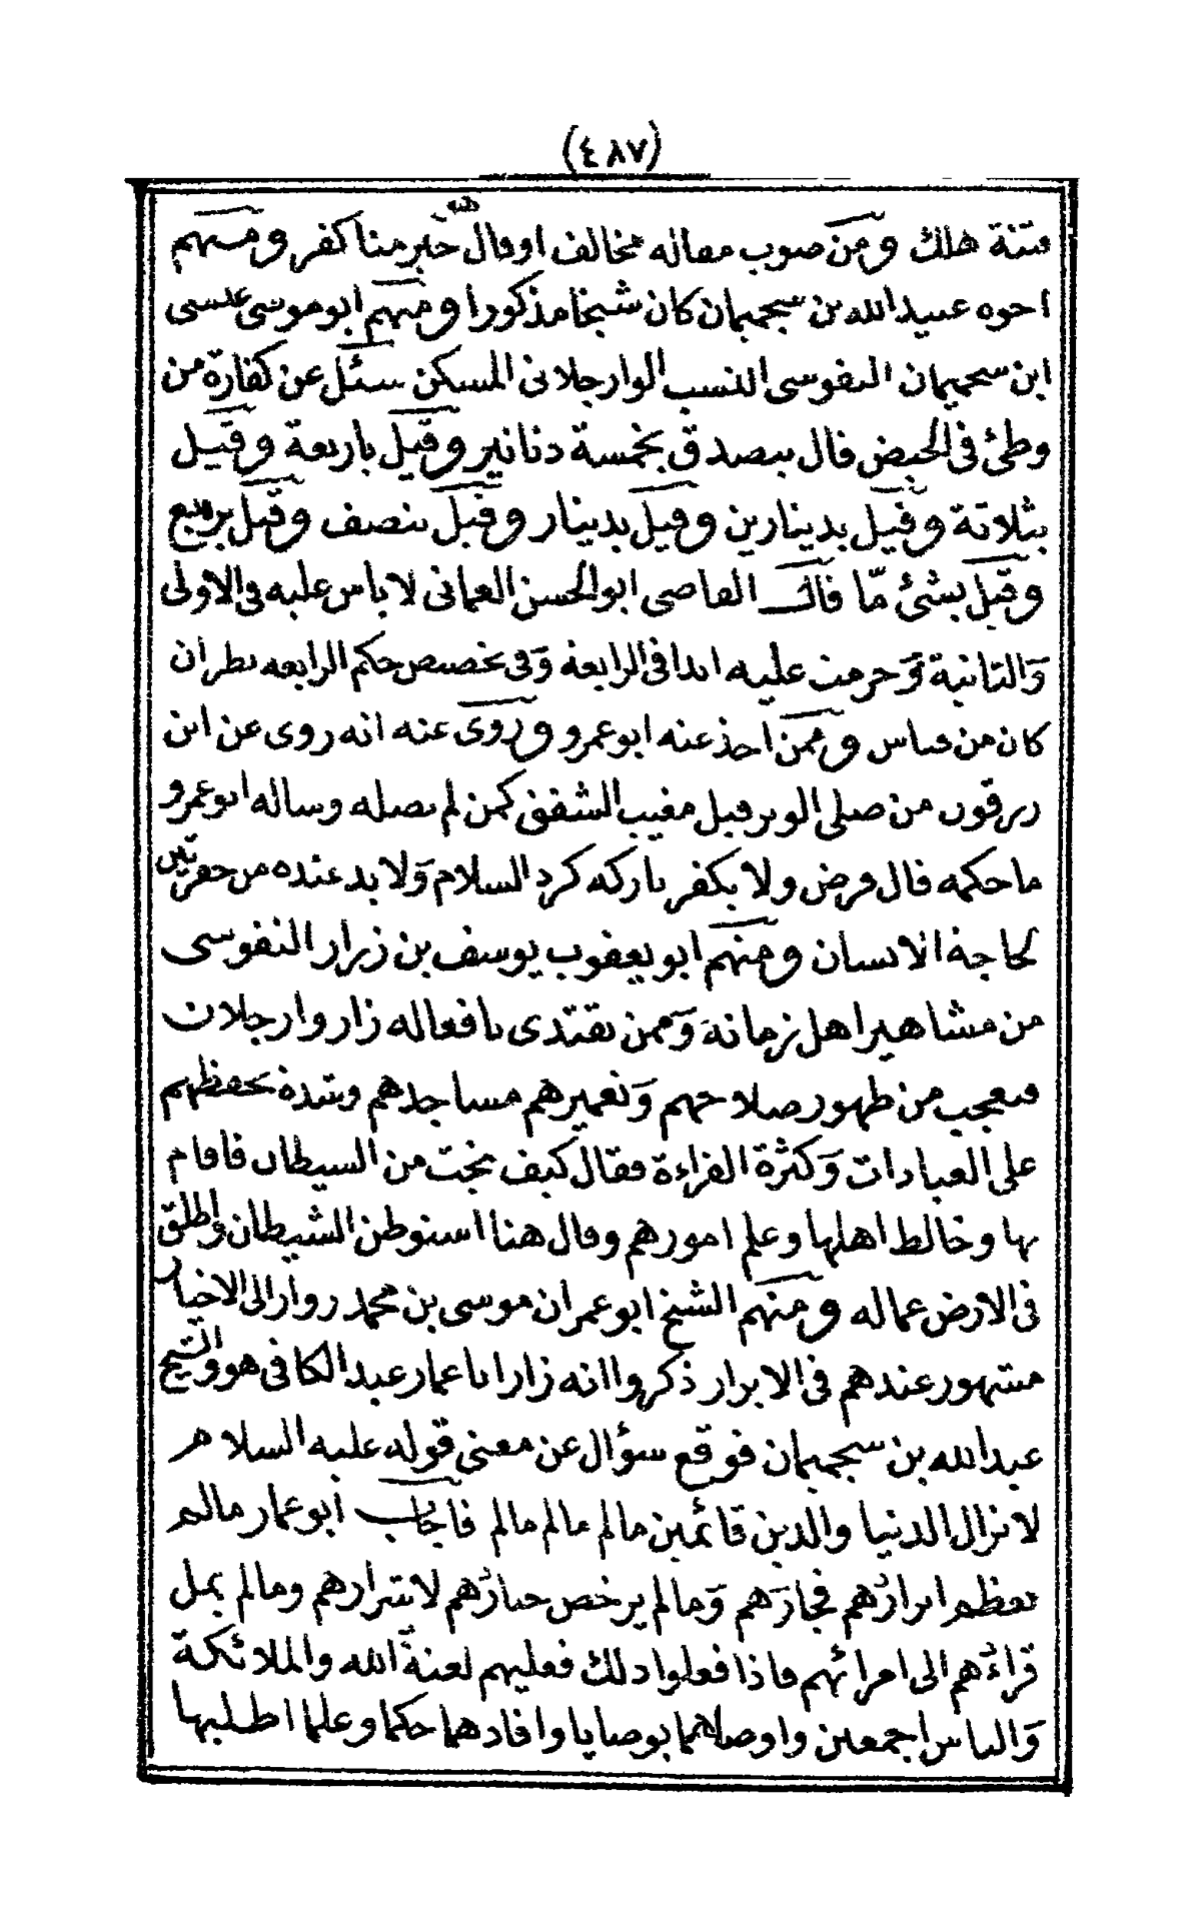 (٤٨٧)
فتنة هلك ومن صوب مقاله مخالف او قال فيه خير منا كفر ومنهم
اخوه عبيد الله بن سجميمان كان شيخا مذكورا ومنهم ابو موسى عيسى
ابن سجميمان النفوسى النسب الوارجلانى المسكن سئل عن كفارة من
وطئ فى الحيض قال يتصدق بخمسة دنانير وقيل باربعة وقيل
بثلاثة وقيل بدينارين وقيل بدينار وقيل بنصف وقيل بربع
وقيل بشئ مّا قال القاضى ابو الحسن العمانى لا باس عليه فى الاولى
والثانية وحرمت عليه ابدا فى الرابعة وفى تخصيص حكم الرابعه نظر ان
كان من قياس وممن اخذ عنه ابو عمرو وروى عنه انه روى عن ابن
زرقون من صلى الوتر قبل مغيب الشفق كمن لم يصله وساله ابو عمرو
ما حكمه قال فرض ولا يكفر تاركه كرد السلام ولا بد عنده من حفرتين
لحاجة الانسان ومنهم ابو يعقوب يوسف بن زرار النفوسى
من مشاهير اهل زمانه وممن يقتدى بافعاله زار وارجلان
فتعجب من ظهور صلاحهم وتعميرهم مساجدهم وشدة تحفظهم
على العبادات وكثرة القراءة فقال كيف نجت من الشيطان فاقام
بها وخالط اهلها وعلم امورهم وقال هنا استوطن الشيطان واطلق
فى الارض عماله ومنهم الشيخ ابو عمران موسى بن محمد زوار الى الاخيار
مشهور عندهم فى الابرار ذكروا انه زار ابا عمار عبد الكافى هو والشيخ
عبد الله بن سجميمان فوقع سؤال عن معنى قوله عليه السلام
لا تزال الدنيا والدين قائمين مالم مالم مالم فاجاب ابو عمار مالم
يعظم ابرارُهم فجارَهم ومالم يرخص خيارُهم لاشرارهم ومالم يمل
قراءُهم الى امرائهم فاذا فعلوا ذلك فعليهم لعنة الله والملائكة
والناس اجمعين واوصاهما بوصايا وافادهما حكما وعلما اطلبها